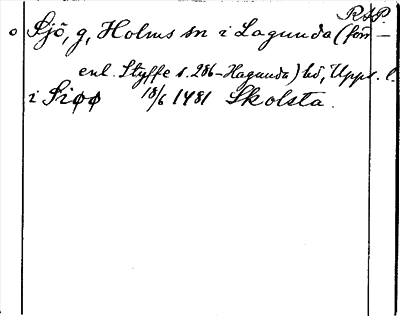 RAP.
o Sjö, g, Holms sn i Lagunda (förr –
enl. Styffe s. 286 – Hagunda) hd, Upps. l.
i Siøø 18/6 1481 Skolsta.